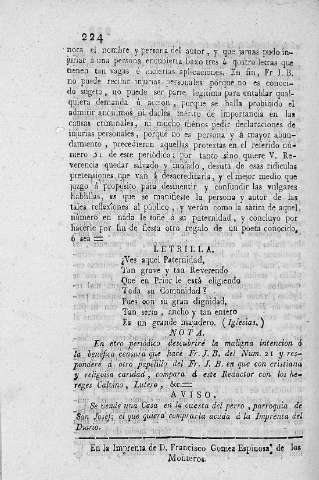 224
nora el nombre y persona del autor, y que jamas pudo in-
juriar á una persona encubierta baxo tres ó quatro letras que
tienen tan vagas é inciertas aplicaciones. En fin, Fr J. B.
no puede recibir injurias personales porque no es conoci-
do sugeto, no puede ser parte legitima para entablar qual-
quiera demanda ó accion, porque se halla prohibido el
admitir anonimos ni darles mérito de importancia en las
causas criminales, ni mucho menos pedir declaraciones de
injurias personales, porque no es persona y á mayor abun-
damiento, precedieron aquellas protextas en el referido nú-
mero 31 de este periódico; por tanto sino quere V. Re-
verencia quedar salvado y tranquilo, desista de esas ridiculas
pretensiones que van á desacreditarla, y el mejor medio que
juzgo á propósito para desmentir y confundir las vulgares
hablillas, es que se manifieste la persona y autor de las
tales reflexiones al público, y verán como la sátira de aquel
número en nada le toñe á su paternidad, y concluyo por
hacerle por fin de fiesta otro regalo de un poeta conocido,
ó sea =
LETRILLA.
¿Ves aquel Paternidad,
Tan grave y tan Reverendo
Que en Prior le está eligiendo
Toda su Comunidad?
Pues con su gran dignidad,
Tan serio, ancho y tan entero
Es un grande majadero. (Iglesias.)
NOTA.
En otro periódico descubriré la maligna intencion á
la benéfica censura que hace Fr. J. B. del Num. 21 y res-
pondere á otro papelillo del Fr. J. B. en que con cristiana
y religiosa caridad, compara á este Redactor con los he-
reges Calvino, Lutero, &c =
AVISO.
Se vende una Casa en la cuesta del perro, parroquia de
San Josef; el que quiera comprarla acuda á la Imprenta del
Diario.
En la Imprenta de D. Francisco Gomez Espinosa de los
Monteros.